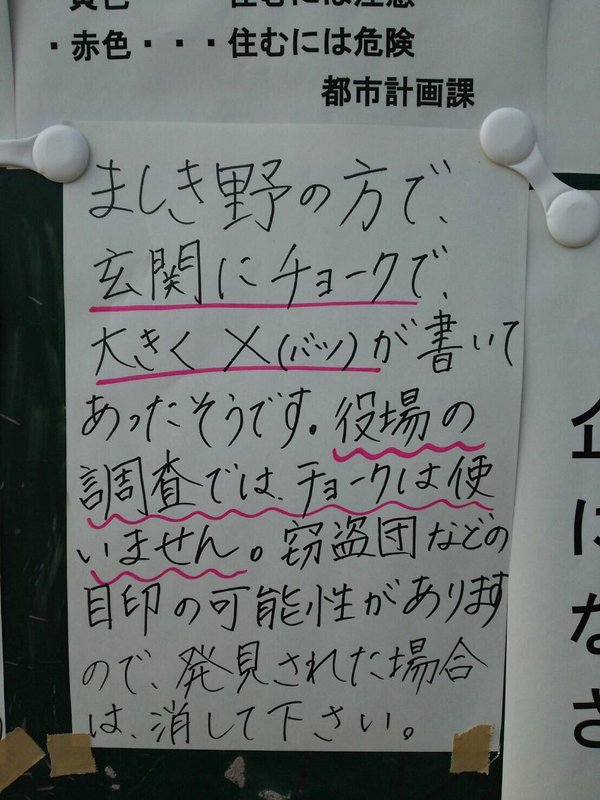 黄色　　　住むには注意
・赤色・・・住むには危険
都市計画課
ましき野の方で、
玄関にチョークで、
大きく×(バツ)が書いて
あったそうです。役場の
調査では、チョークは使
いません。窃盗団などの
目印の可能性があります
ので、発見された場合
は、消して下さい。
企
に
な
さ